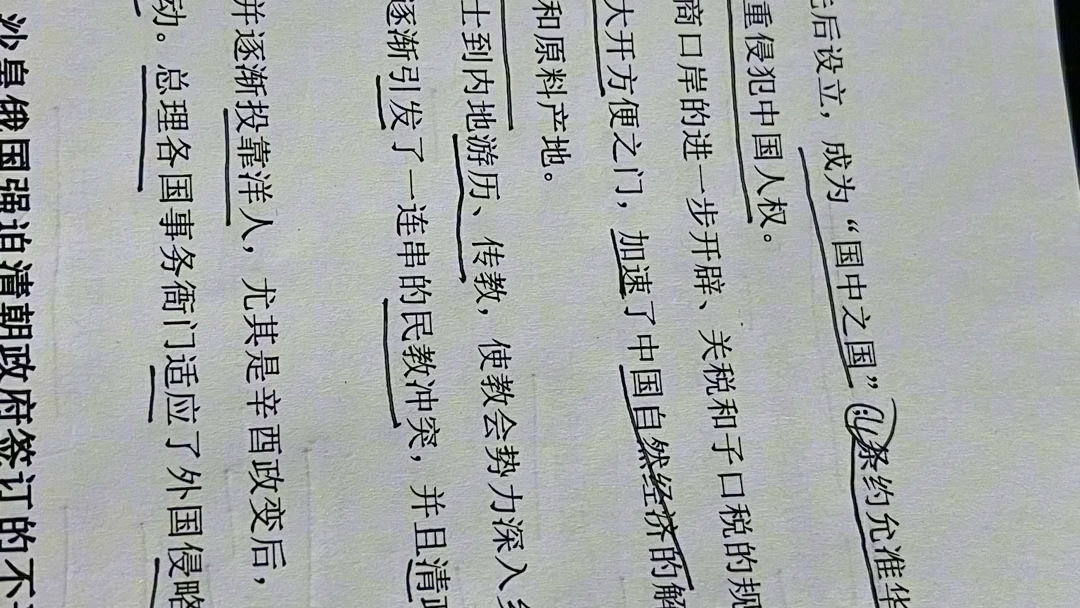 先后设立，成为“国中之国”。此条约允准华
重侵犯中国人权。
商口岸的进一步开辟、关税和子口税的规
大开方便之门，加速了中国自然经济的解
和原料产地。
士到内地游历、传教，使教会势力深入
逐渐引发了一连串的民教冲突，并且清政
并逐渐投靠洋人，尤其是辛酉政变后，
动。总理各国事务衙门适应了外国侵略
沙皇俄国强迫清朝政府签订的不